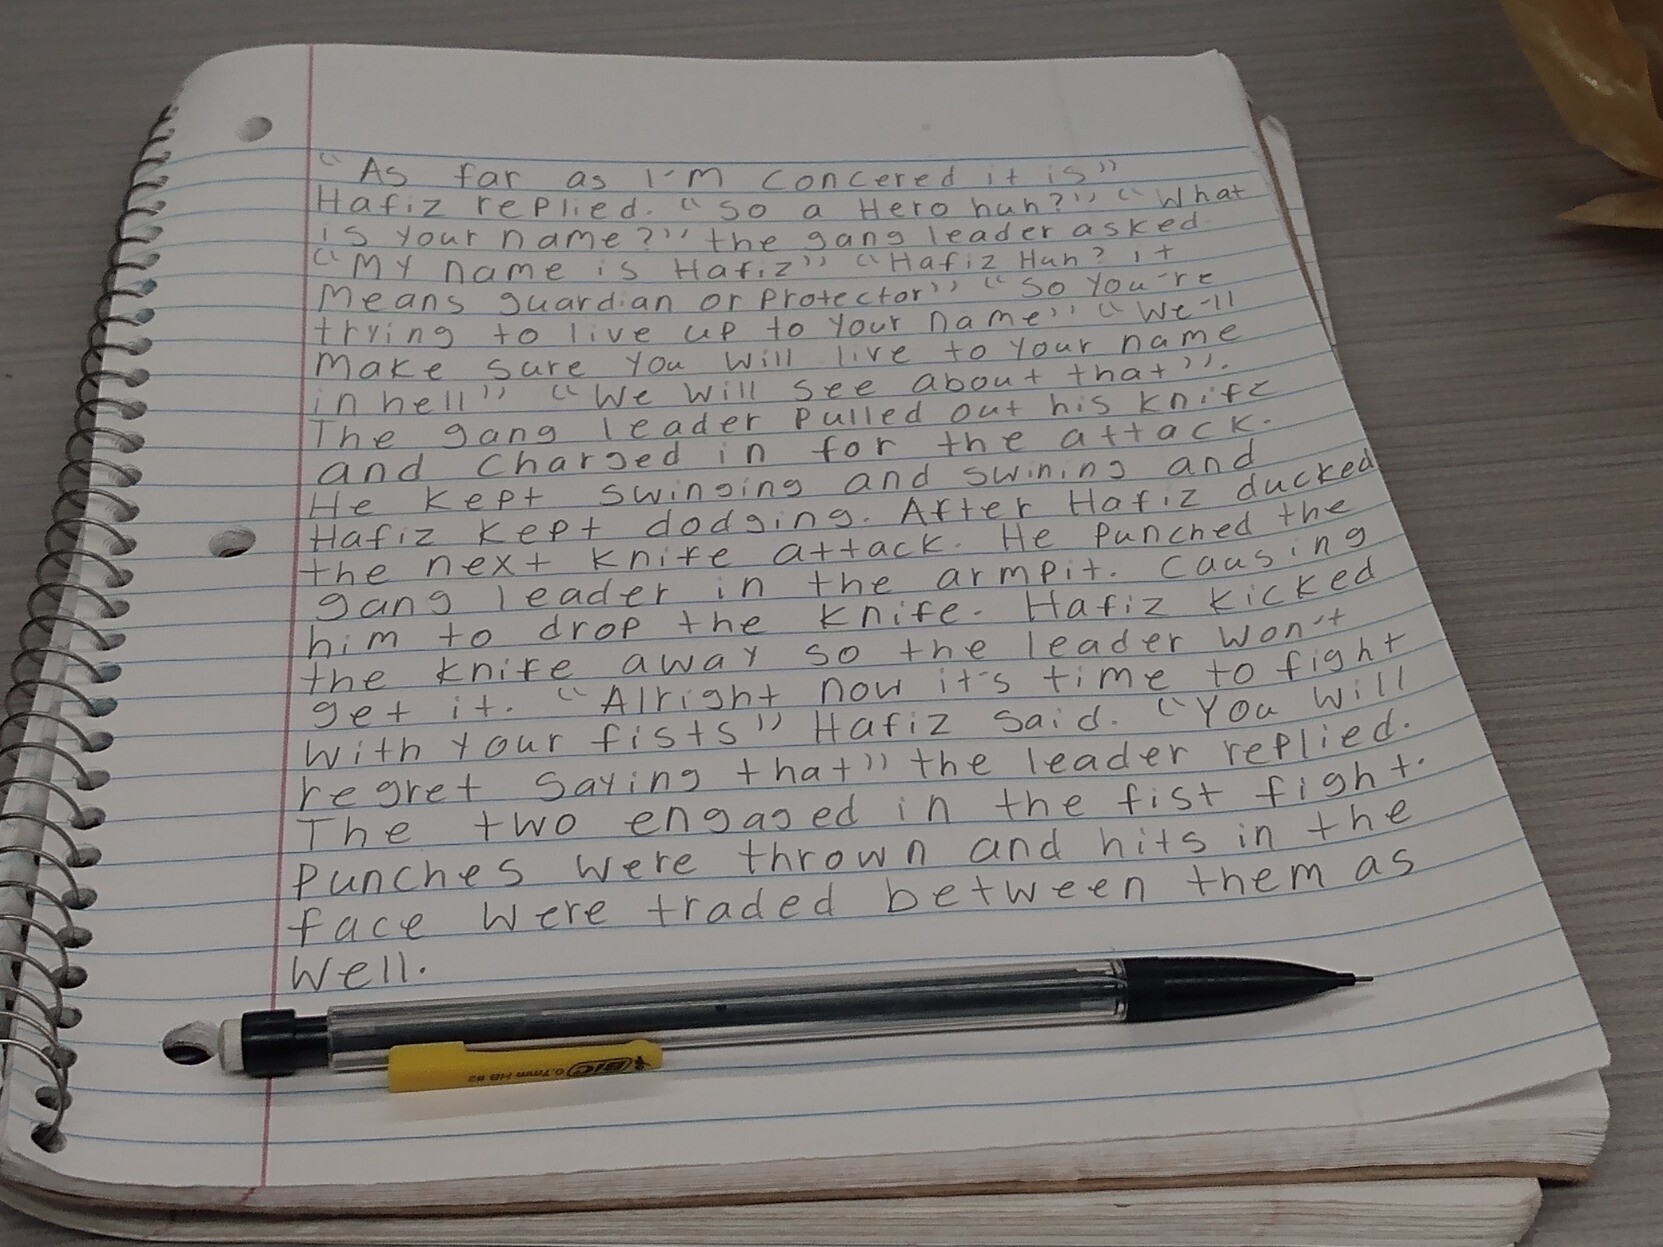 “As far as I'm concered it is”
Hafiz replied. “so a Hero huh?” “What
is your name?” the gang leader asked
“My name is Hafiz” “Hafiz Huh? it
Means guardian or protector” “so you're
trying to live up to your name” “We'll
make sure you will live to your name
in hell” “We will see about that”.
The gang leader pulled out his knife
and charged in for the attack.
He kept swinging and swining and
Hafiz kept dodging. After Hafiz ducked
the next knife attack. He punched the
gang leader in the armpit. Causing
him to drop the knife. Hafiz kicked
the knife away so the leader won't
get it. “Alright now it's time to fight
with your fists” Hafiz said. “You will
regret saying that” the leader replied.
The two engaged in the fist fight.
Punches were thrown and hits in the
face were traded between them as
well.
BIC 0.7mm HB #2